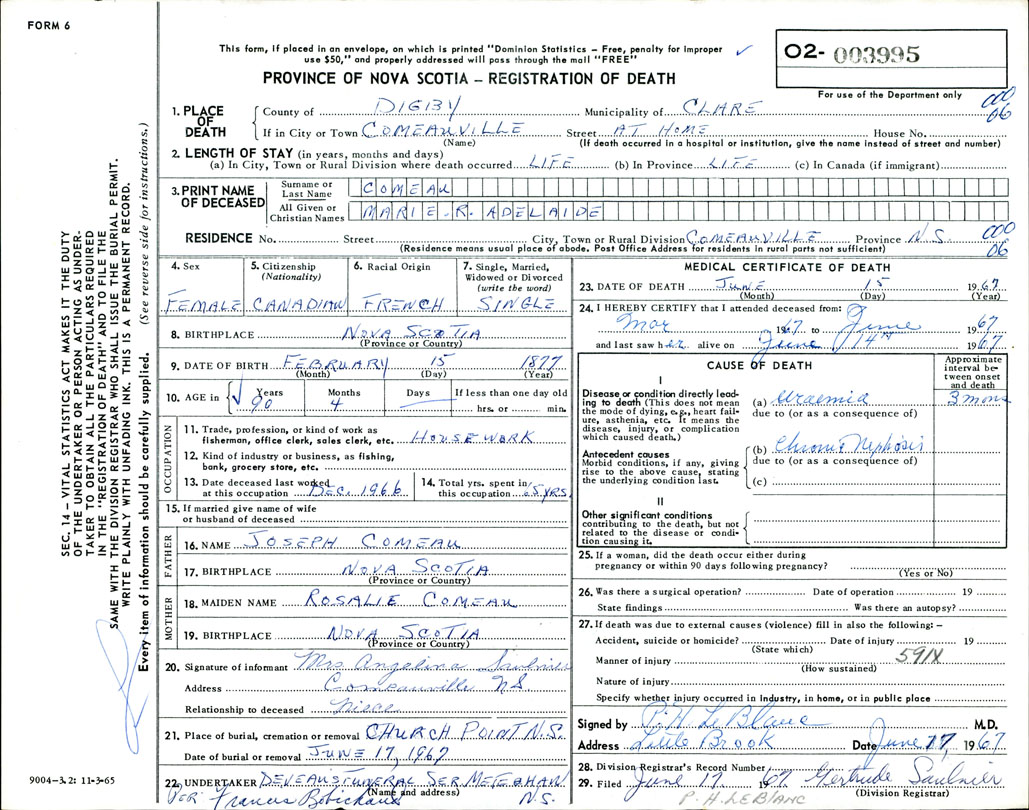 FORM 6
This form, if placed in an envelope, on which is printed "Dominion Statistics – Free, penalty for improper
use $50," and properly addressed will pass through the mail "FREE"
PROVINCE OF NOVA SCOTIA – REGISTRATION OF DEATH
O2- 003995
For use of the Department only
1. PLACE OF DEATH County of DIGBY Municipality of CLARE 000 06
If in City or Town COMEAUVILLE Street AT HOME House No.
(Name) (If death occurred in a hospital or institution, give the name instead of street and number)
2. LENGTH OF STAY (in years, months and days)
(a) In City, Town or Rural Division where death occurred LIFE (b) In Province LIFE (c) In Canada (if immigrant)
3. PRINT NAME OF DECEASED Surname or Last Name COMEAU
All Given or Christian Names MARIE.R.ADELAIDE
RESIDENCE No. Street City, Town or Rural Division COMEAUVILLE Province N.S. 000 06
(Residence means usual place of abode. Post Office Address for residents in rural parts not sufficient)
4. Sex FEMALE
5. Citizenship (Nationality) CANADIAN
6. Racial Origin FRENCH
7. Single, Married, Widowed or Divorced (write the word) SINGLE
8. BIRTHPLACE NOVA SCOTIA
(Province or Country)
9. DATE OF BIRTH FEBRUARY 15 1877
(Month) (Day) (Year)
10. AGE in Years 90 Months 4 Days If less than one day old hrs. or min.
OCCUPATION
11. Trade, profession, or kind of work as
fisherman, office clerk, sales clerk, etc. HOUSEWORK
12. Kind of industry or business, as fishing,
bank, grocery store, etc.
13. Date deceased last worked
at this occupation DEC. 1966
14. Total yrs. spent in
this occupation 65 YRS
15. If married give name of wife
or husband of deceased
FATHER
16. NAME JOSEPH COMEAU
17. BIRTHPLACE NOVA SCOTIA
(Province or Country)
MOTHER
18. MAIDEN NAME ROSALIE COMEAU
19. BIRTHPLACE NOVA SCOTIA
(Province or Country)
20. Signature of informant Mrs Angelina Saulnier
Address Comeauville NS
Relationship to deceased Niece
21. Place of burial, cremation or removal CHURCH POINT N.S.
Date of burial or removal JUNE 17, 1967
22. UNDERTAKER DEVEAUS FUNERAL SER. METEGHAN
(Name and address) N.S.
Per Francis Robichaud
MEDICAL CERTIFICATE OF DEATH
23. DATE OF DEATH June 15 1967
(Month) (Day) (Year)
24. I HEREBY CERTIFY that I attended deceased from:
Mar 1967 to June 1967
and last saw her alive on June 14th 1967
CAUSE OF DEATH
Approximate interval between onset and death
I
Disease or condition directly leading to death (This does not mean the mode of dying, e.g., heart failure, asthenia, etc. It means the disease, injury, or complication which caused death.)
(a) Uraemia 3 mons
due to (or as a consequence of)
Antecedent causes
Morbid conditions, if any, giving rise to the above cause, stating the underlying condition last.
(b) Chronic Nephosis
due to (or as a consequence of)
(c)
II
Other significant conditions
contributing to the death, but not related to the disease or condition causing it.
25. If a woman, did the death occur either during
pregnancy or within 90 days following pregnancy?
(Yes or No)
26. Was there a surgical operation? Date of operation 19
State findings Was there an autopsy?
27. If death was due to external causes (violence) fill in also the following: –
Accident, suicide or homicide? Date of injury 19
(State which)
Manner of injury 591X
(How sustained)
Nature of injury
Specify whether injury occurred in Industry, in home, or in public place
Signed by P.H. LeBlanc M.D.
Address Little Brook Date June 17 1967
28. Division Registrar's Record Number
29. Filed June 17 1967 Gertrude Saulnier
(Division Registrar)
P.H. LEBLANC
SEC. 14 – VITAL STATISTICS ACT MAKES IT THE DUTY
OF THE UNDERTAKER OR PERSON ACTING AS UNDER-
TAKER TO OBTAIN ALL THE PARTICULARS REQUIRED
IN THE "REGISTRATION OF DEATH" AND TO FILE THE
SAME WITH THE DIVISION REGISTRAR WHO SHALL ISSUE THE BURIAL PERMIT.
WRITE PLAINLY WITH UNFADING INK. THIS IS A PERMANENT RECORD.
Every item of information should be carefully supplied. (See reverse side for instructions.)
9004-3.2: 11-3-65